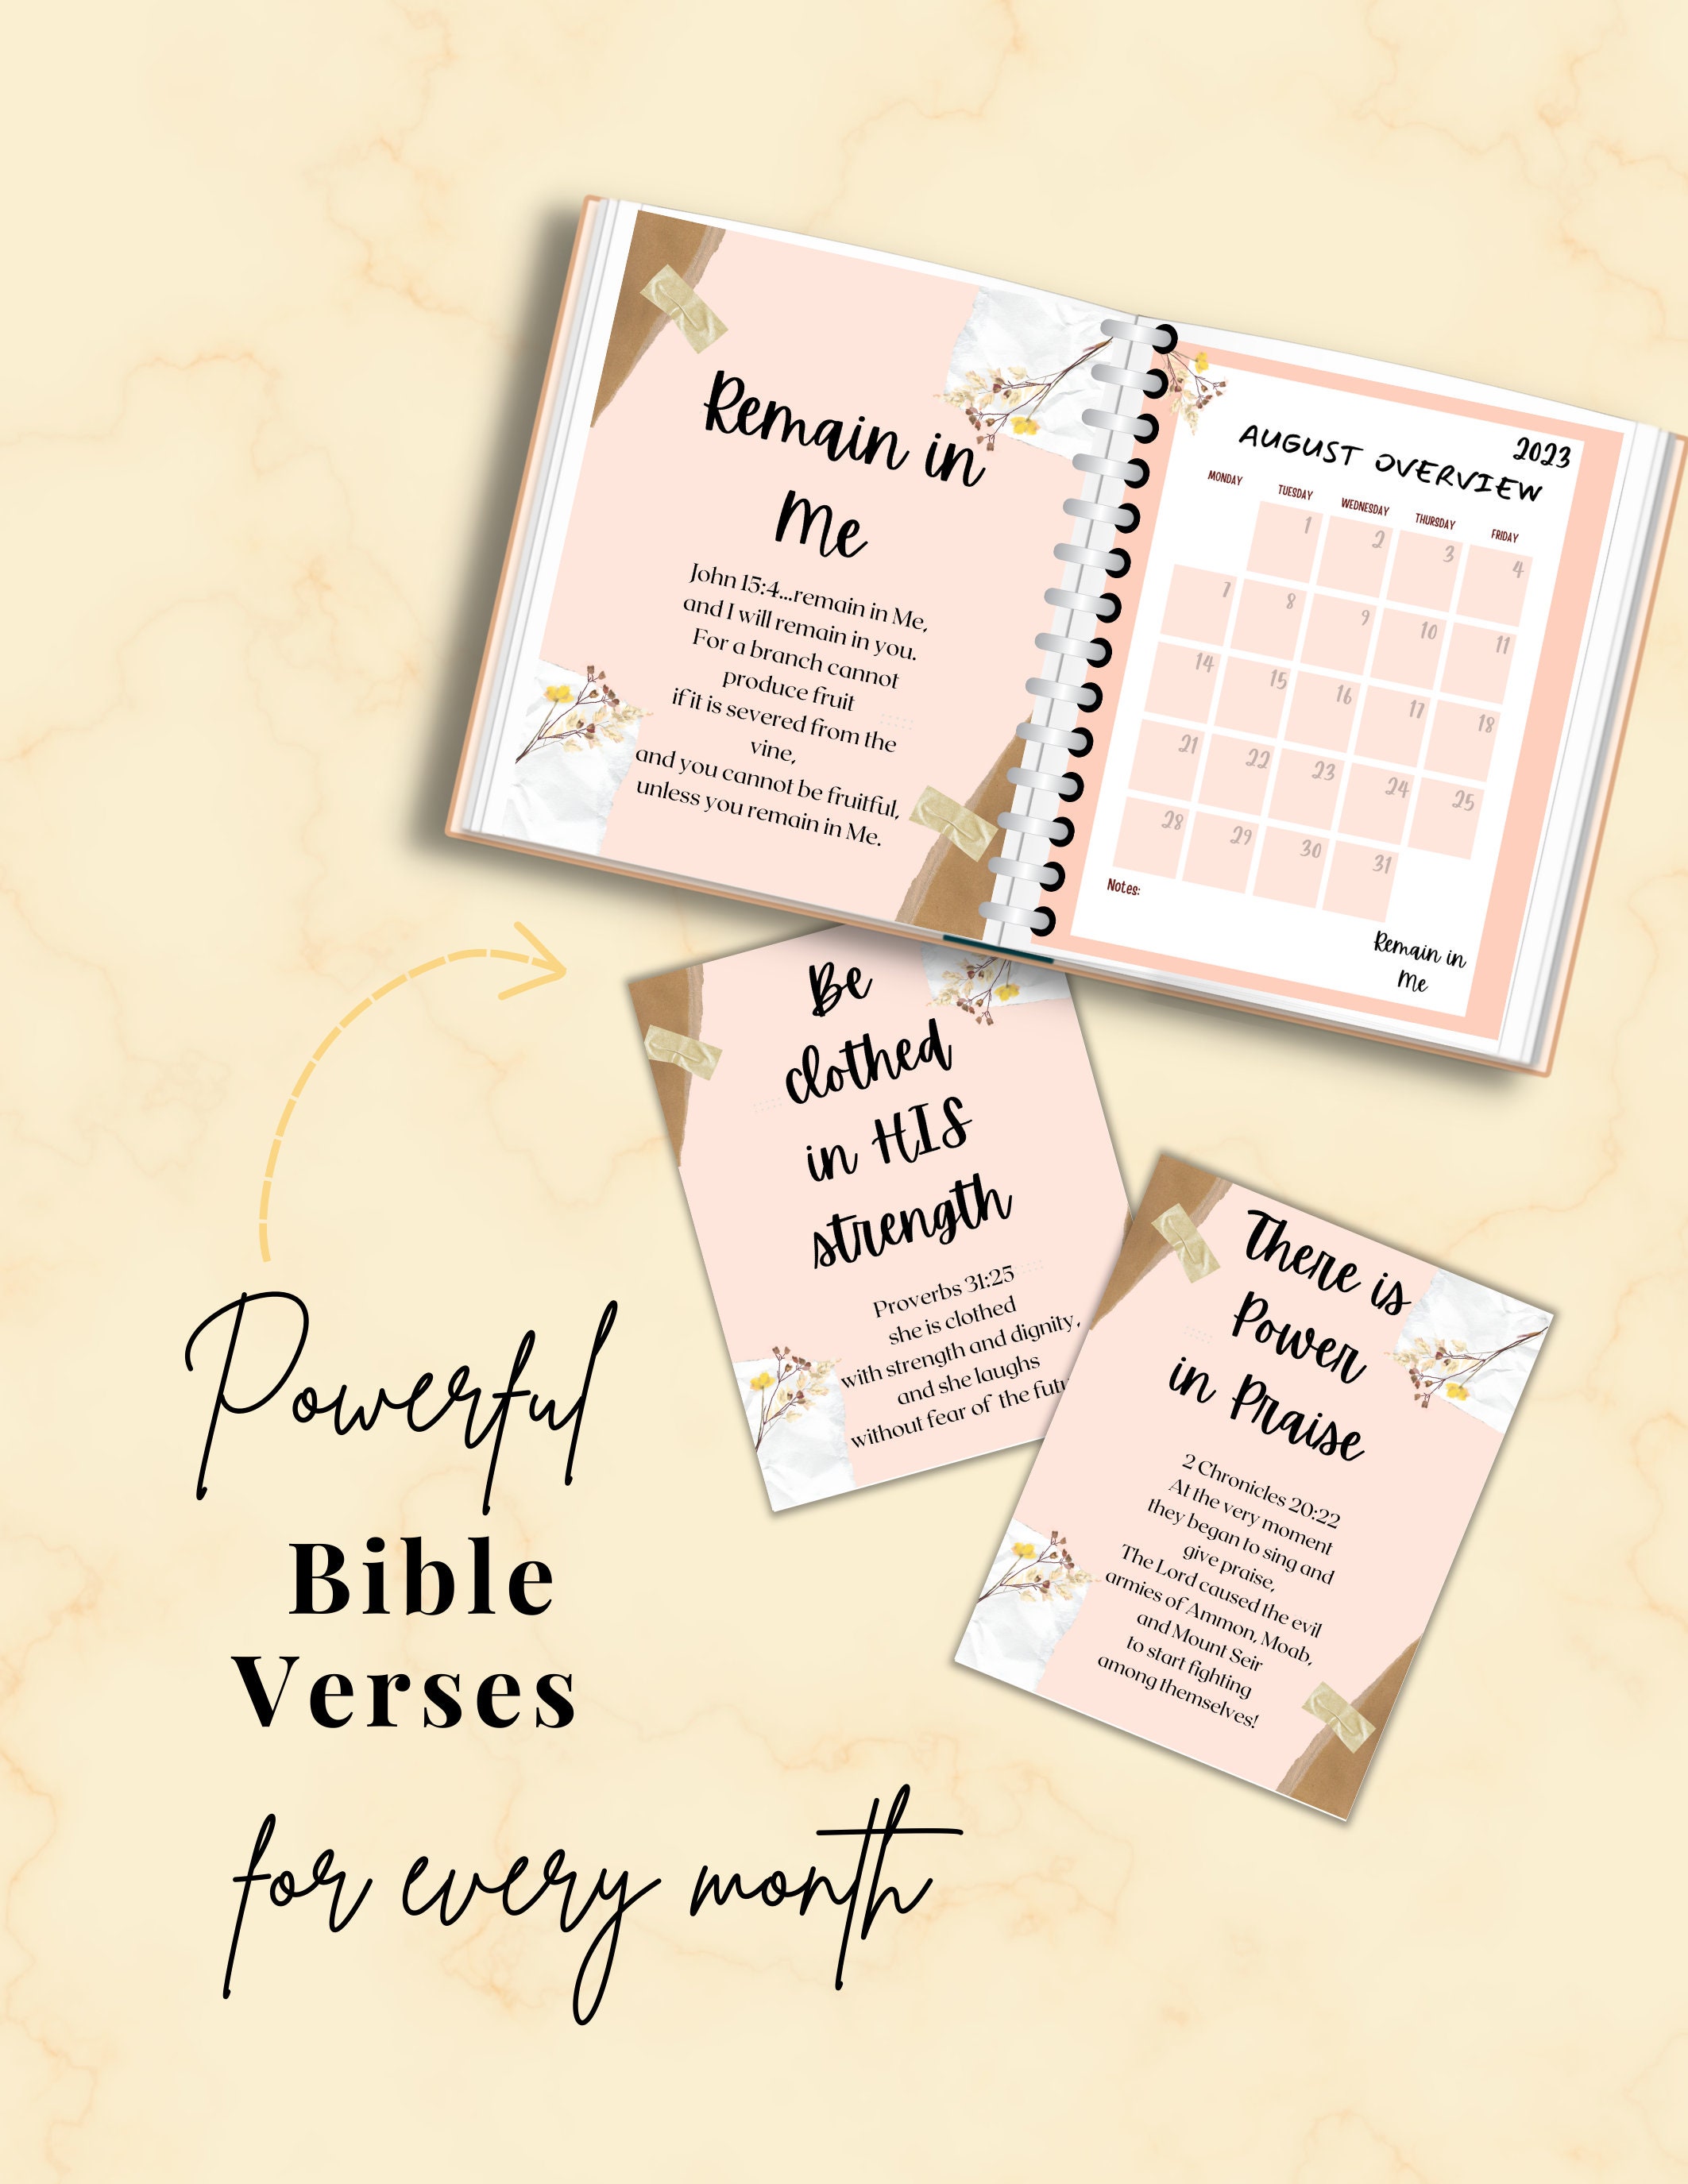 Remain in
Me
John 15:4...remain in Me,
and I will remain in you.
For a branch cannot
produce fruit
if it is severed from the
vine,
and you cannot be fruitful,
unless you remain in Me.
2023
AUGUST OVERVIEW
MONDAY TUESDAY WEDNESDAY THURSDAY FRIDAY
1 2 3 4
7 8 9 10 11
14 15 16 17 18
21 22 23 24 25
28 29 30 31
Notes:
Remain in
Me
Be
clothed
in HIS
strength
Proverbs 31:25
she is clothed
with strength and dignity,
and she laughs
without fear of the
There is
Power
in Praise
2 Chronicles 20:22
At the very moment
they began to sing and
give praise,
The Lord caused the evil
armies of Ammon, Moab,
and Mount Seir
to start fighting
among themselves!
Powerful
Bible
Verses
for every month